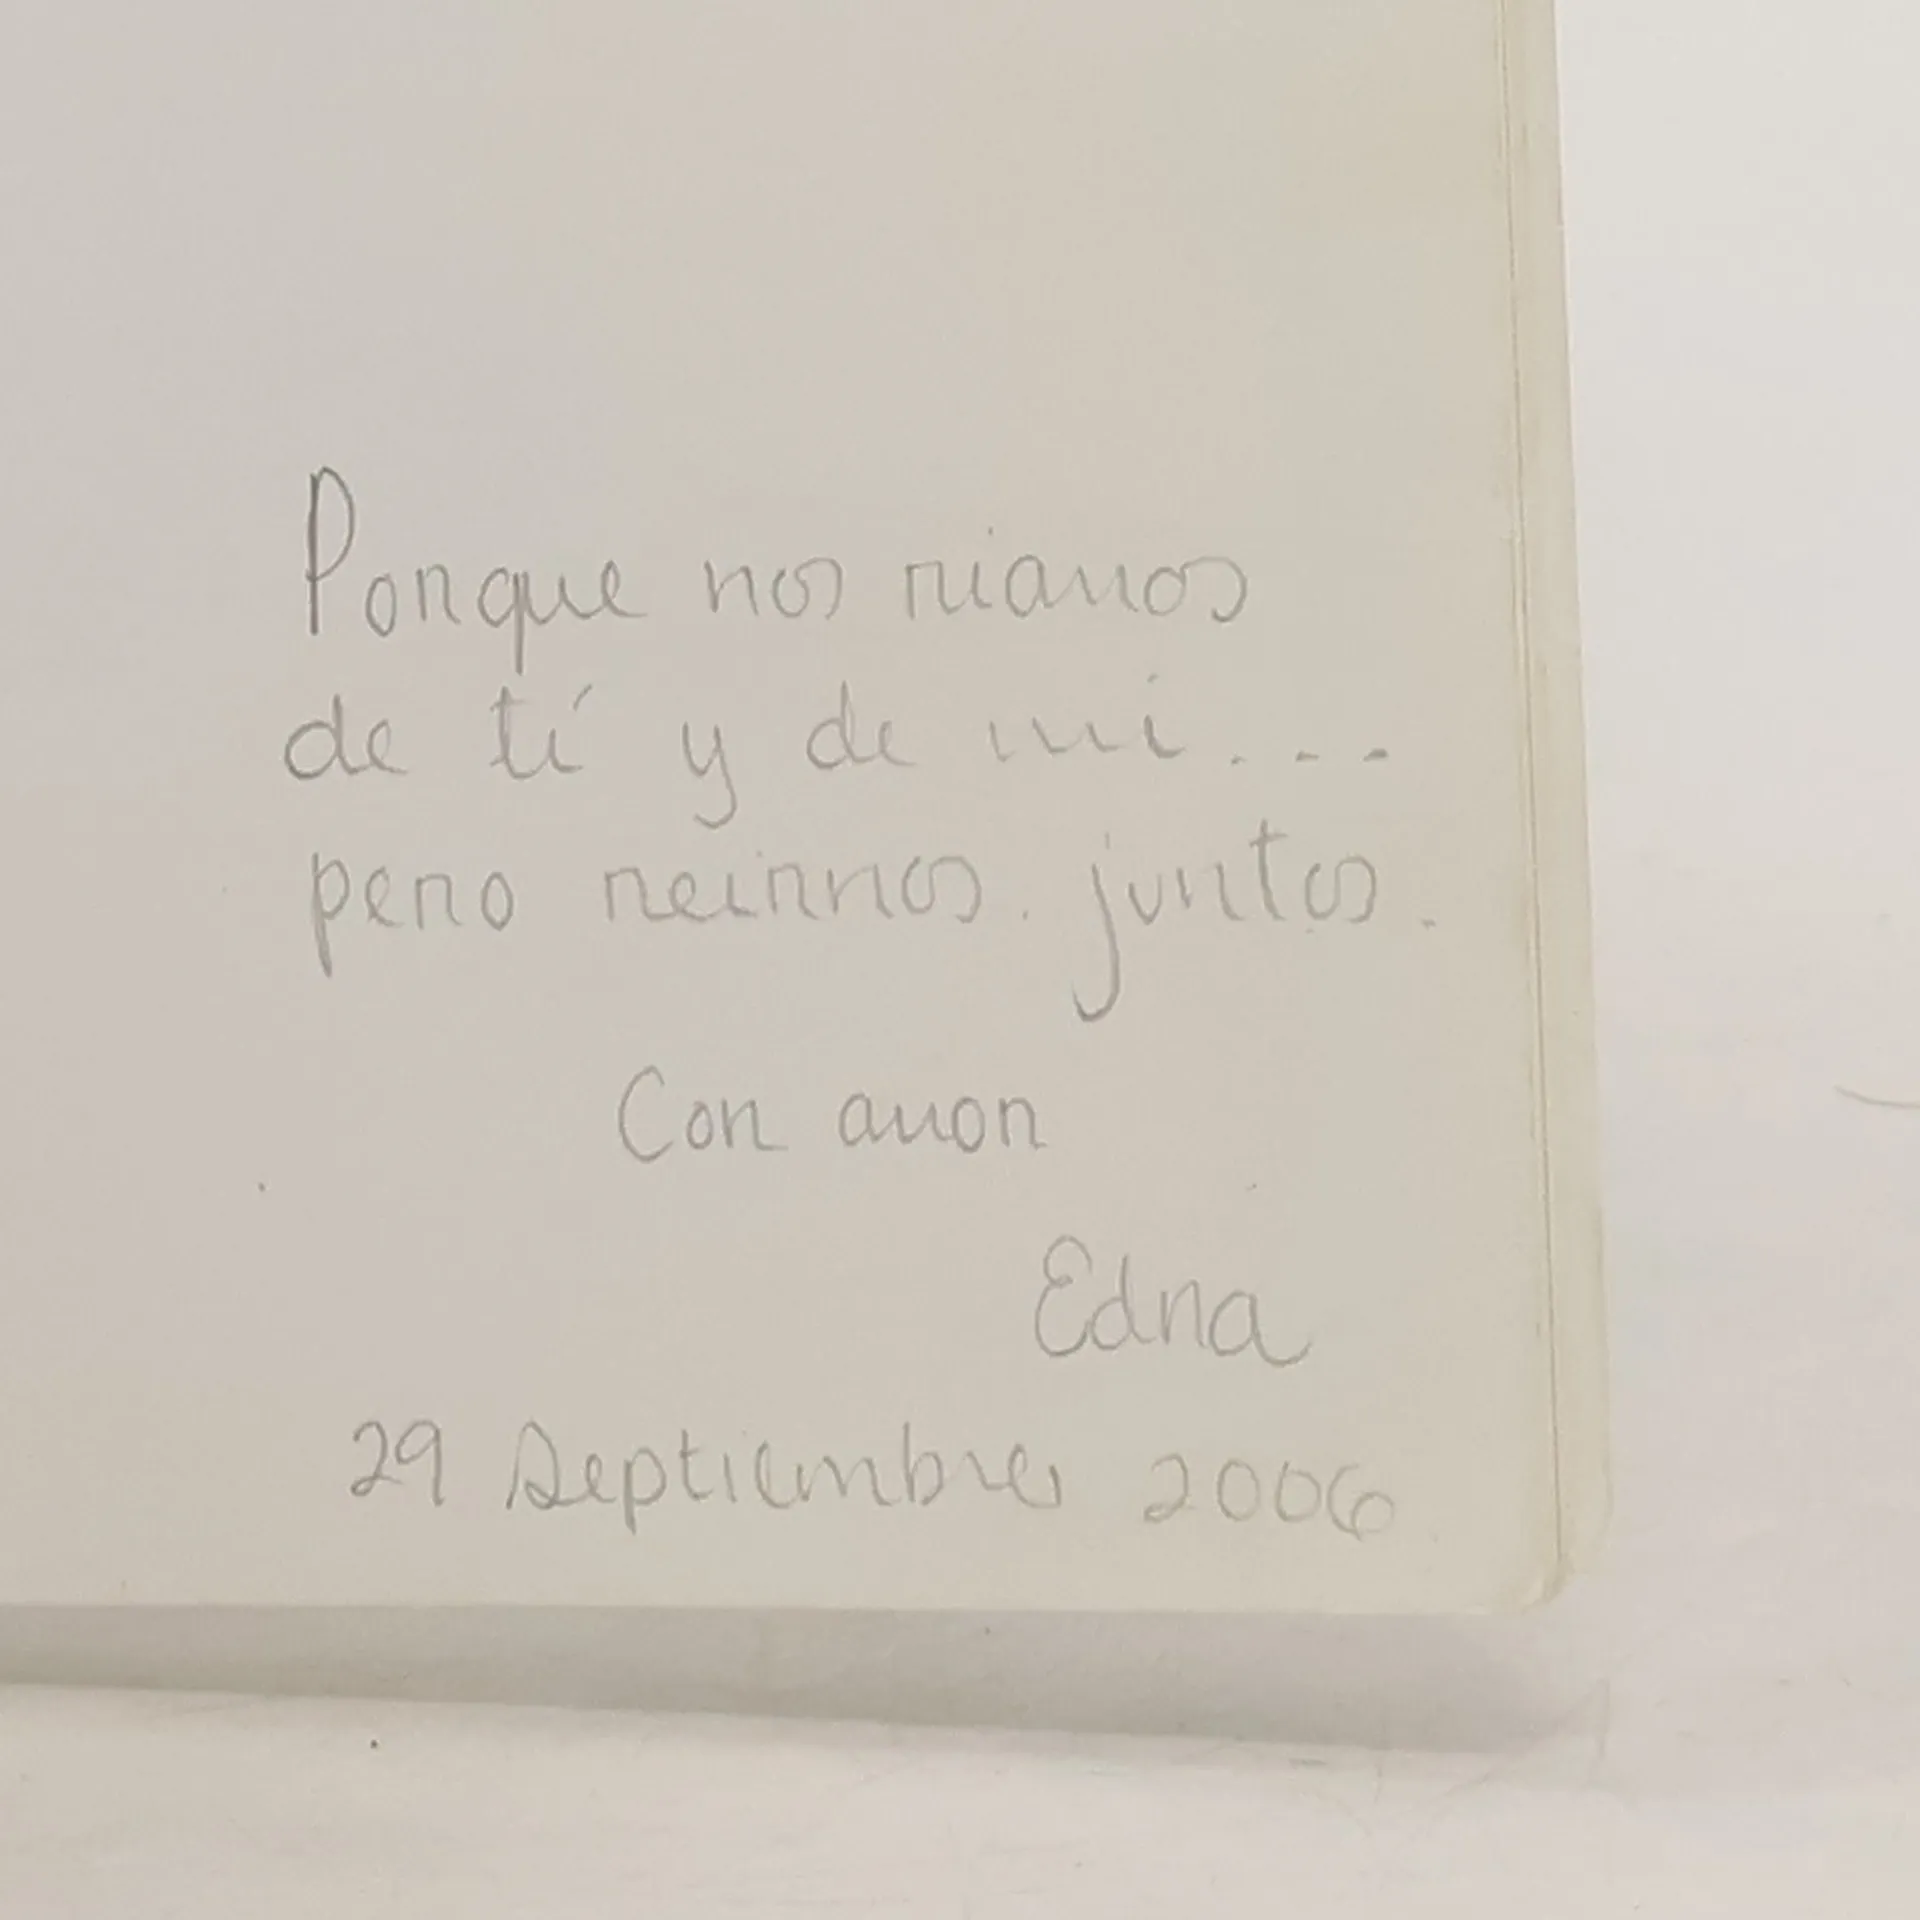 Porque nos riamos
de tí y de mi....
pero reirnos juntos.
Con amor
Edna
29 Septiembre 2006